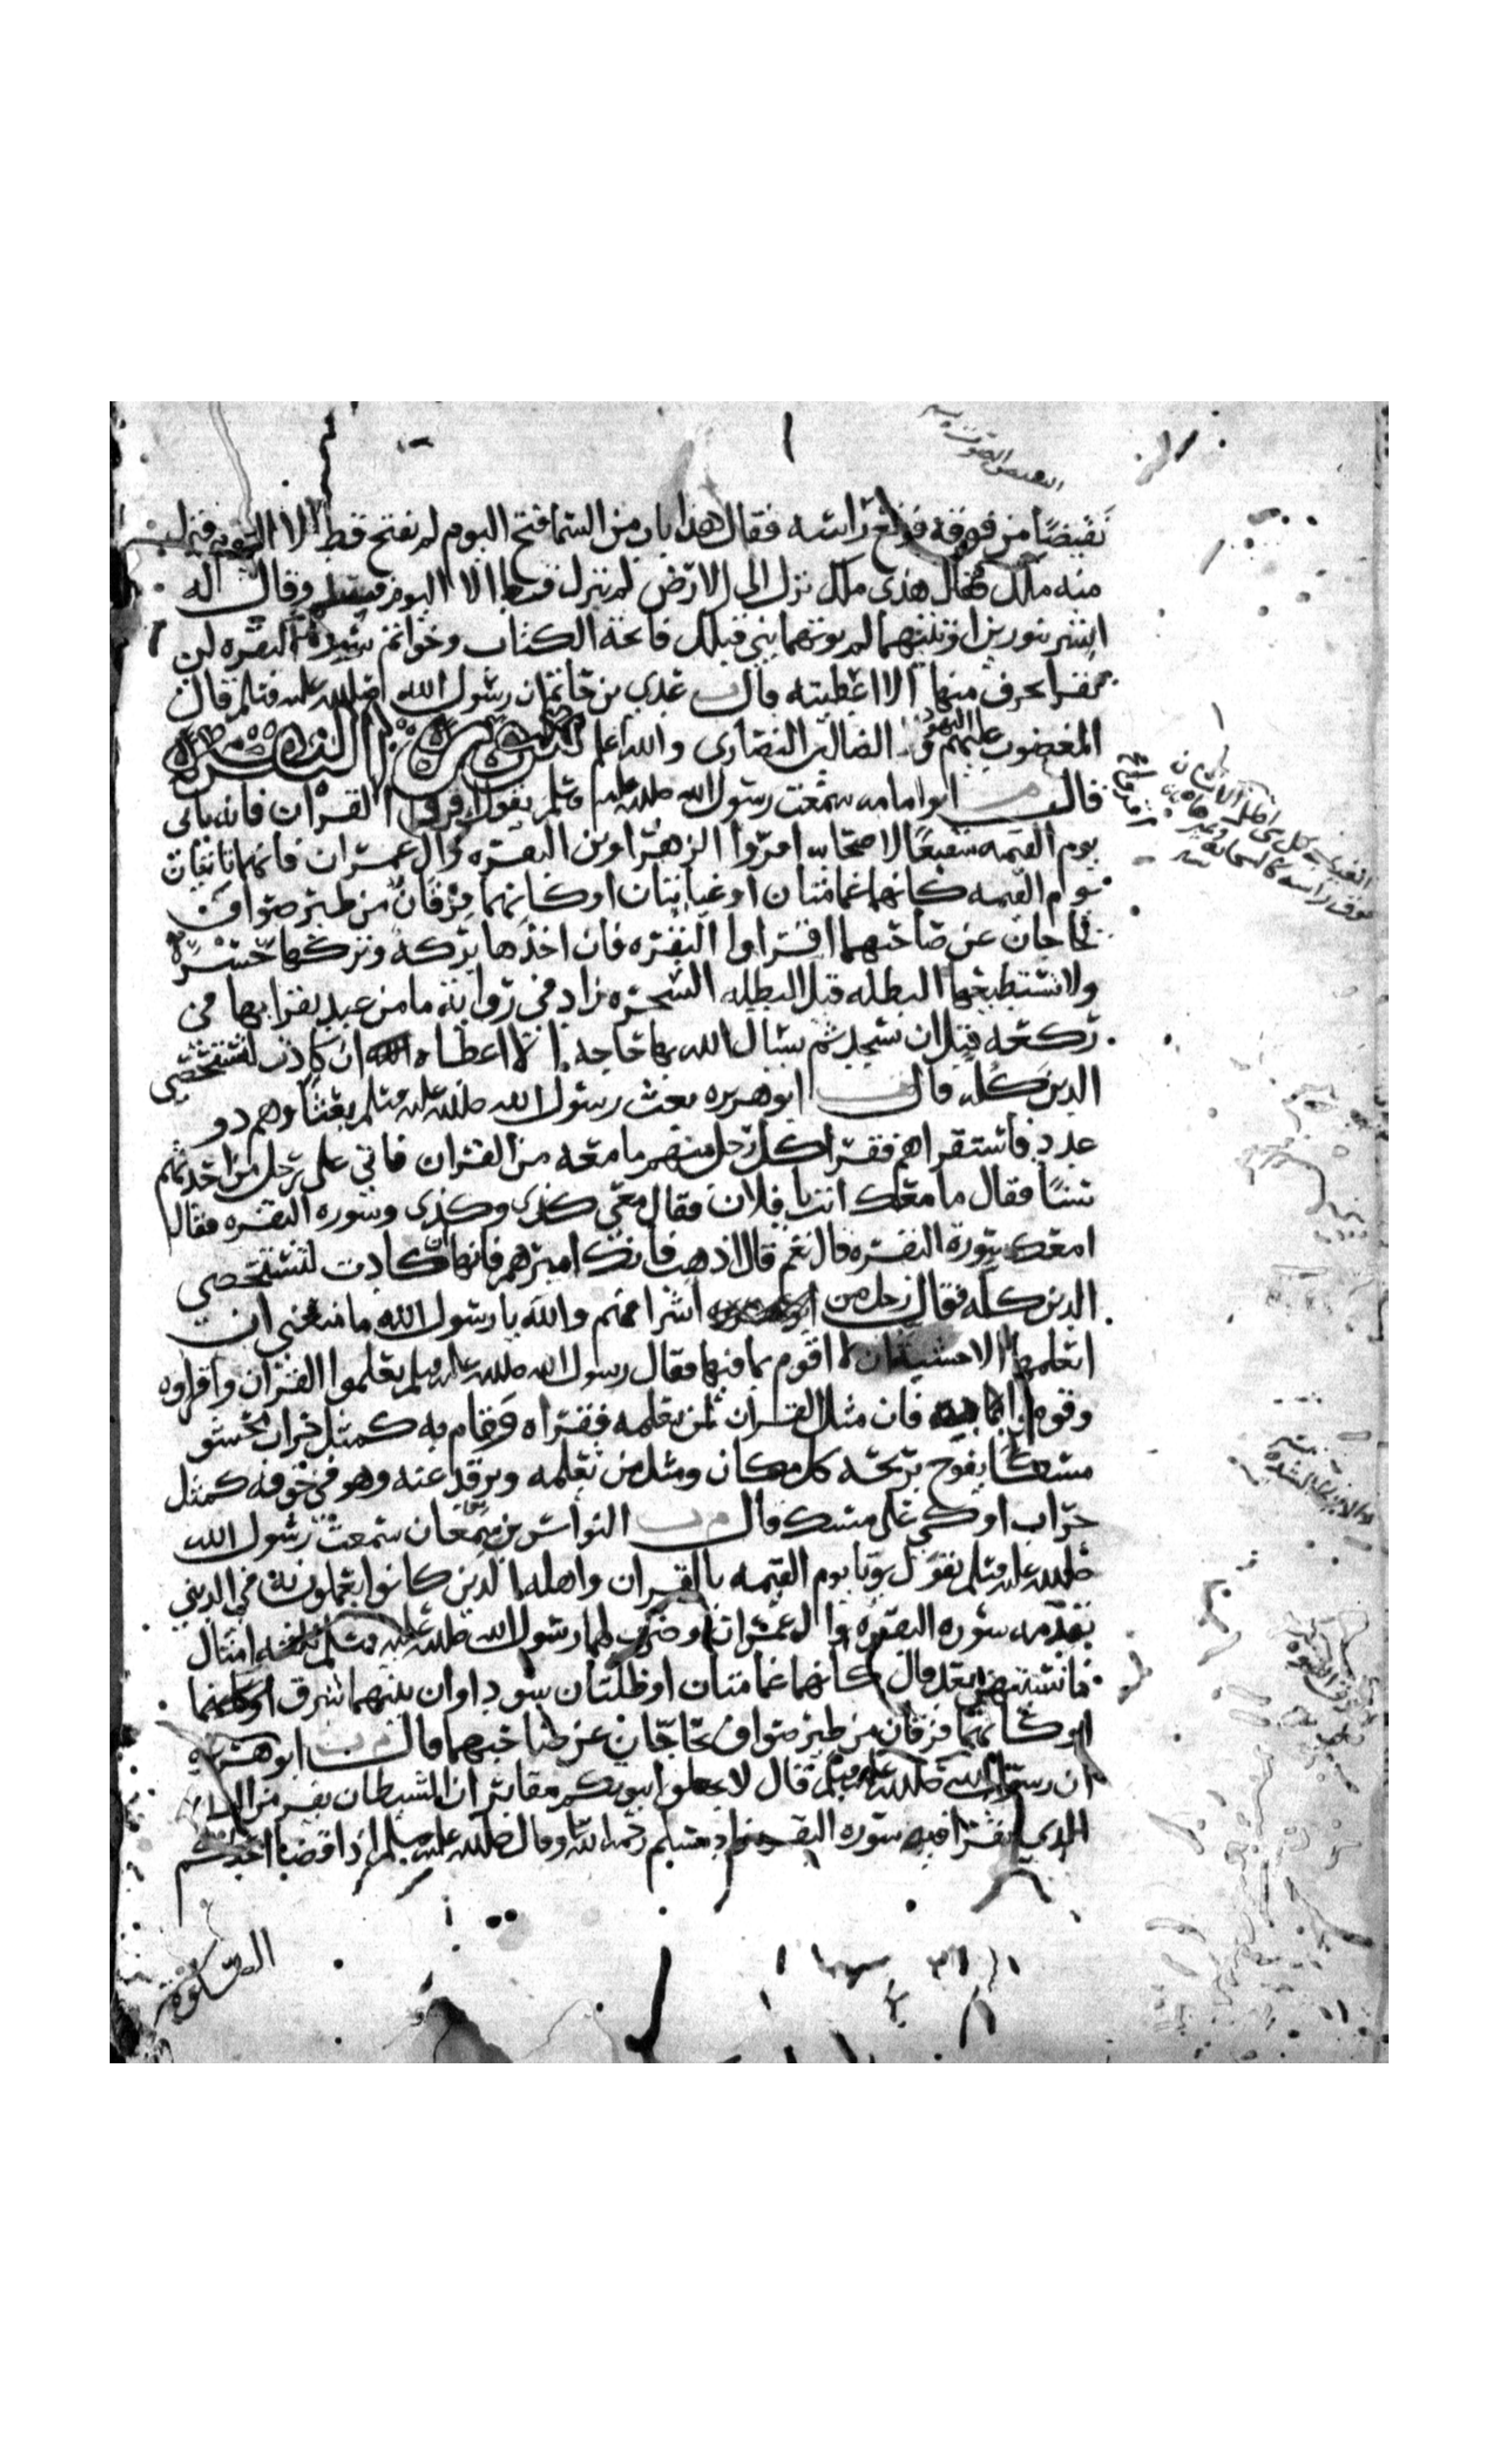 النقيض الصوت
نقيضًا من فوقه فرفع راسه فقال هذا باب من السما فتح اليوم لم يفتح قط الا اليوم فنزل
منه ملك فقال هذى ملك نزل الى الارض لم ينزل قط الا اليوم فسلم وقال له
ابشر بنورين اوتيتهما لم يوتهما نبي قبلك فاتحة الكتاب وخواتم سورة البقره لن
تقرا بحرف منها الا اعطيته قال عدي بن حاتم ان رسول الله صلى الله عليه وسلم قال
المغضوب عليهم اليهود و الضالين النصارى والله اعلم سورة البقره
قال ابو امامه سمعت رسول الله صلى الله عليه وسلم يقول اقروا القران فانه ياتي
يوم القيمه شفيعًا لاصحابه اقروا الزهراوين البقره وال عمران فانهما تاتيان
يوم القيمه كانهما غمامتان او غيايتان او كانهما فرقان من طير صواف
تحاجان عن صاحبهما اقراوا البقره فان اخذها بركه وتركها حسره
ولا تستطيعها البطله قيل البطله السحره زاد في روايه ما من عبد يقرا بها في
ركعه قبل ان يسجد ثم يسال الله بها حاجه الا اعطاه ان كادت لتستحصي
الدين كله قال ابو هريره بعث رسول الله صلى الله عليه وسلم بعثًا وهم ذو
عدد فاستقراهم فقرا كل رجل منهم ما معه من القران فاتى على رجل من احدثهم
سنًا فقال ما معك انت يا فلان فقال معي كذى وكذى وسوره البقره فقال
امعك سورة البقره قال نعم قال اذهب فانك اميرهم فانها كادت لتستحصي
الدين كله فقال رجل من اشرافهم والله يا رسول الله ما منعني ان
اتعلمها الا خشية ان لا اقوم بما فيها فقال رسول الله صلى الله عليه وسلم تعلموا القران واقراوه
وقوموا به فان مثل القران لمن تعلمه فقراه وقام به كمثل جراب محشو
مسكًا يفوح بريحه كل مكان ومثل من تعلمه ويرقد عنه وهو في جوفه كمثل
جراب اوكي على مسك قال النواس بن سمعان سمعت رسول الله
صلى الله عليه وسلم يقول يوتا يوم القيمه بالقران واهله الذين كانوا يعملون به في الدنيى
تقدمه سوره البقره وال عمران وضرب لهما رسول الله صلى الله عليه وسلم ثلثه امثال
ما نسيتهن بعد قال كانهما غمامتان او ظلتان سوداوان بينهما شرق
او كانهما فرقان من طير صواف تحاجان عن صاحبهما قال ابو هريره
ان رسول الله صلى الله عليه وسلم قال لا تجعلوا بيوتكم مقابر ان الشيطان يفر من البيت
الذي يقرا فيه سوره البقره رواه مسلم رحمه الله وقال صلى الله عليه وسلم اذا قضا احدكم
الصلوة